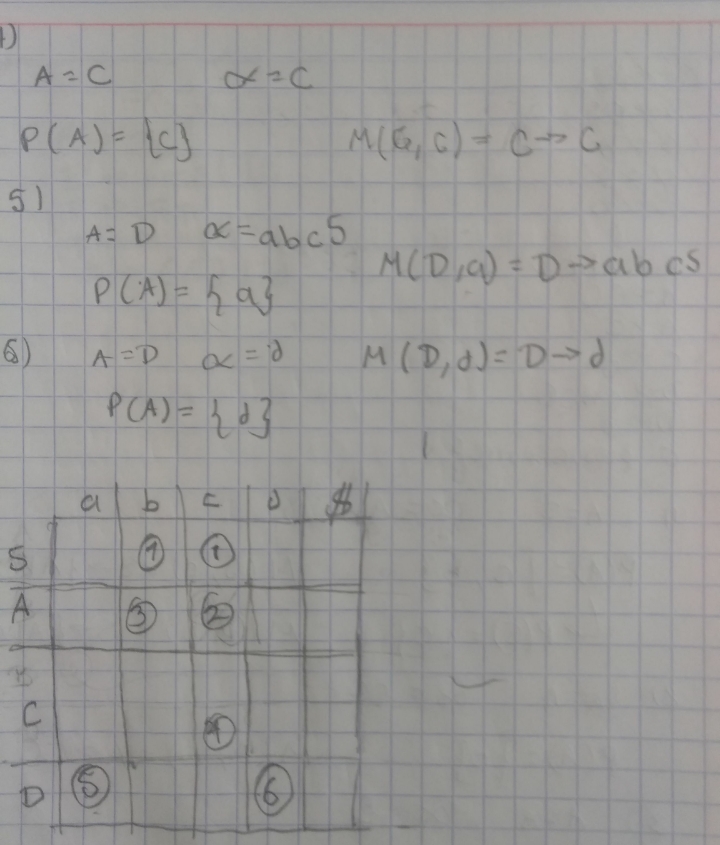 4)
A = C α = C
P(A) = {c} M(C, c) = C → C
5)
A = D α = abcS
M(D, a) = D → abcS
P(A) = {a}
6) A = D α = d M(D, d) = D → d
P(A) = {d}
a b c d $
S ① ①
A ③ ②
C ④
D ⑤ ⑥